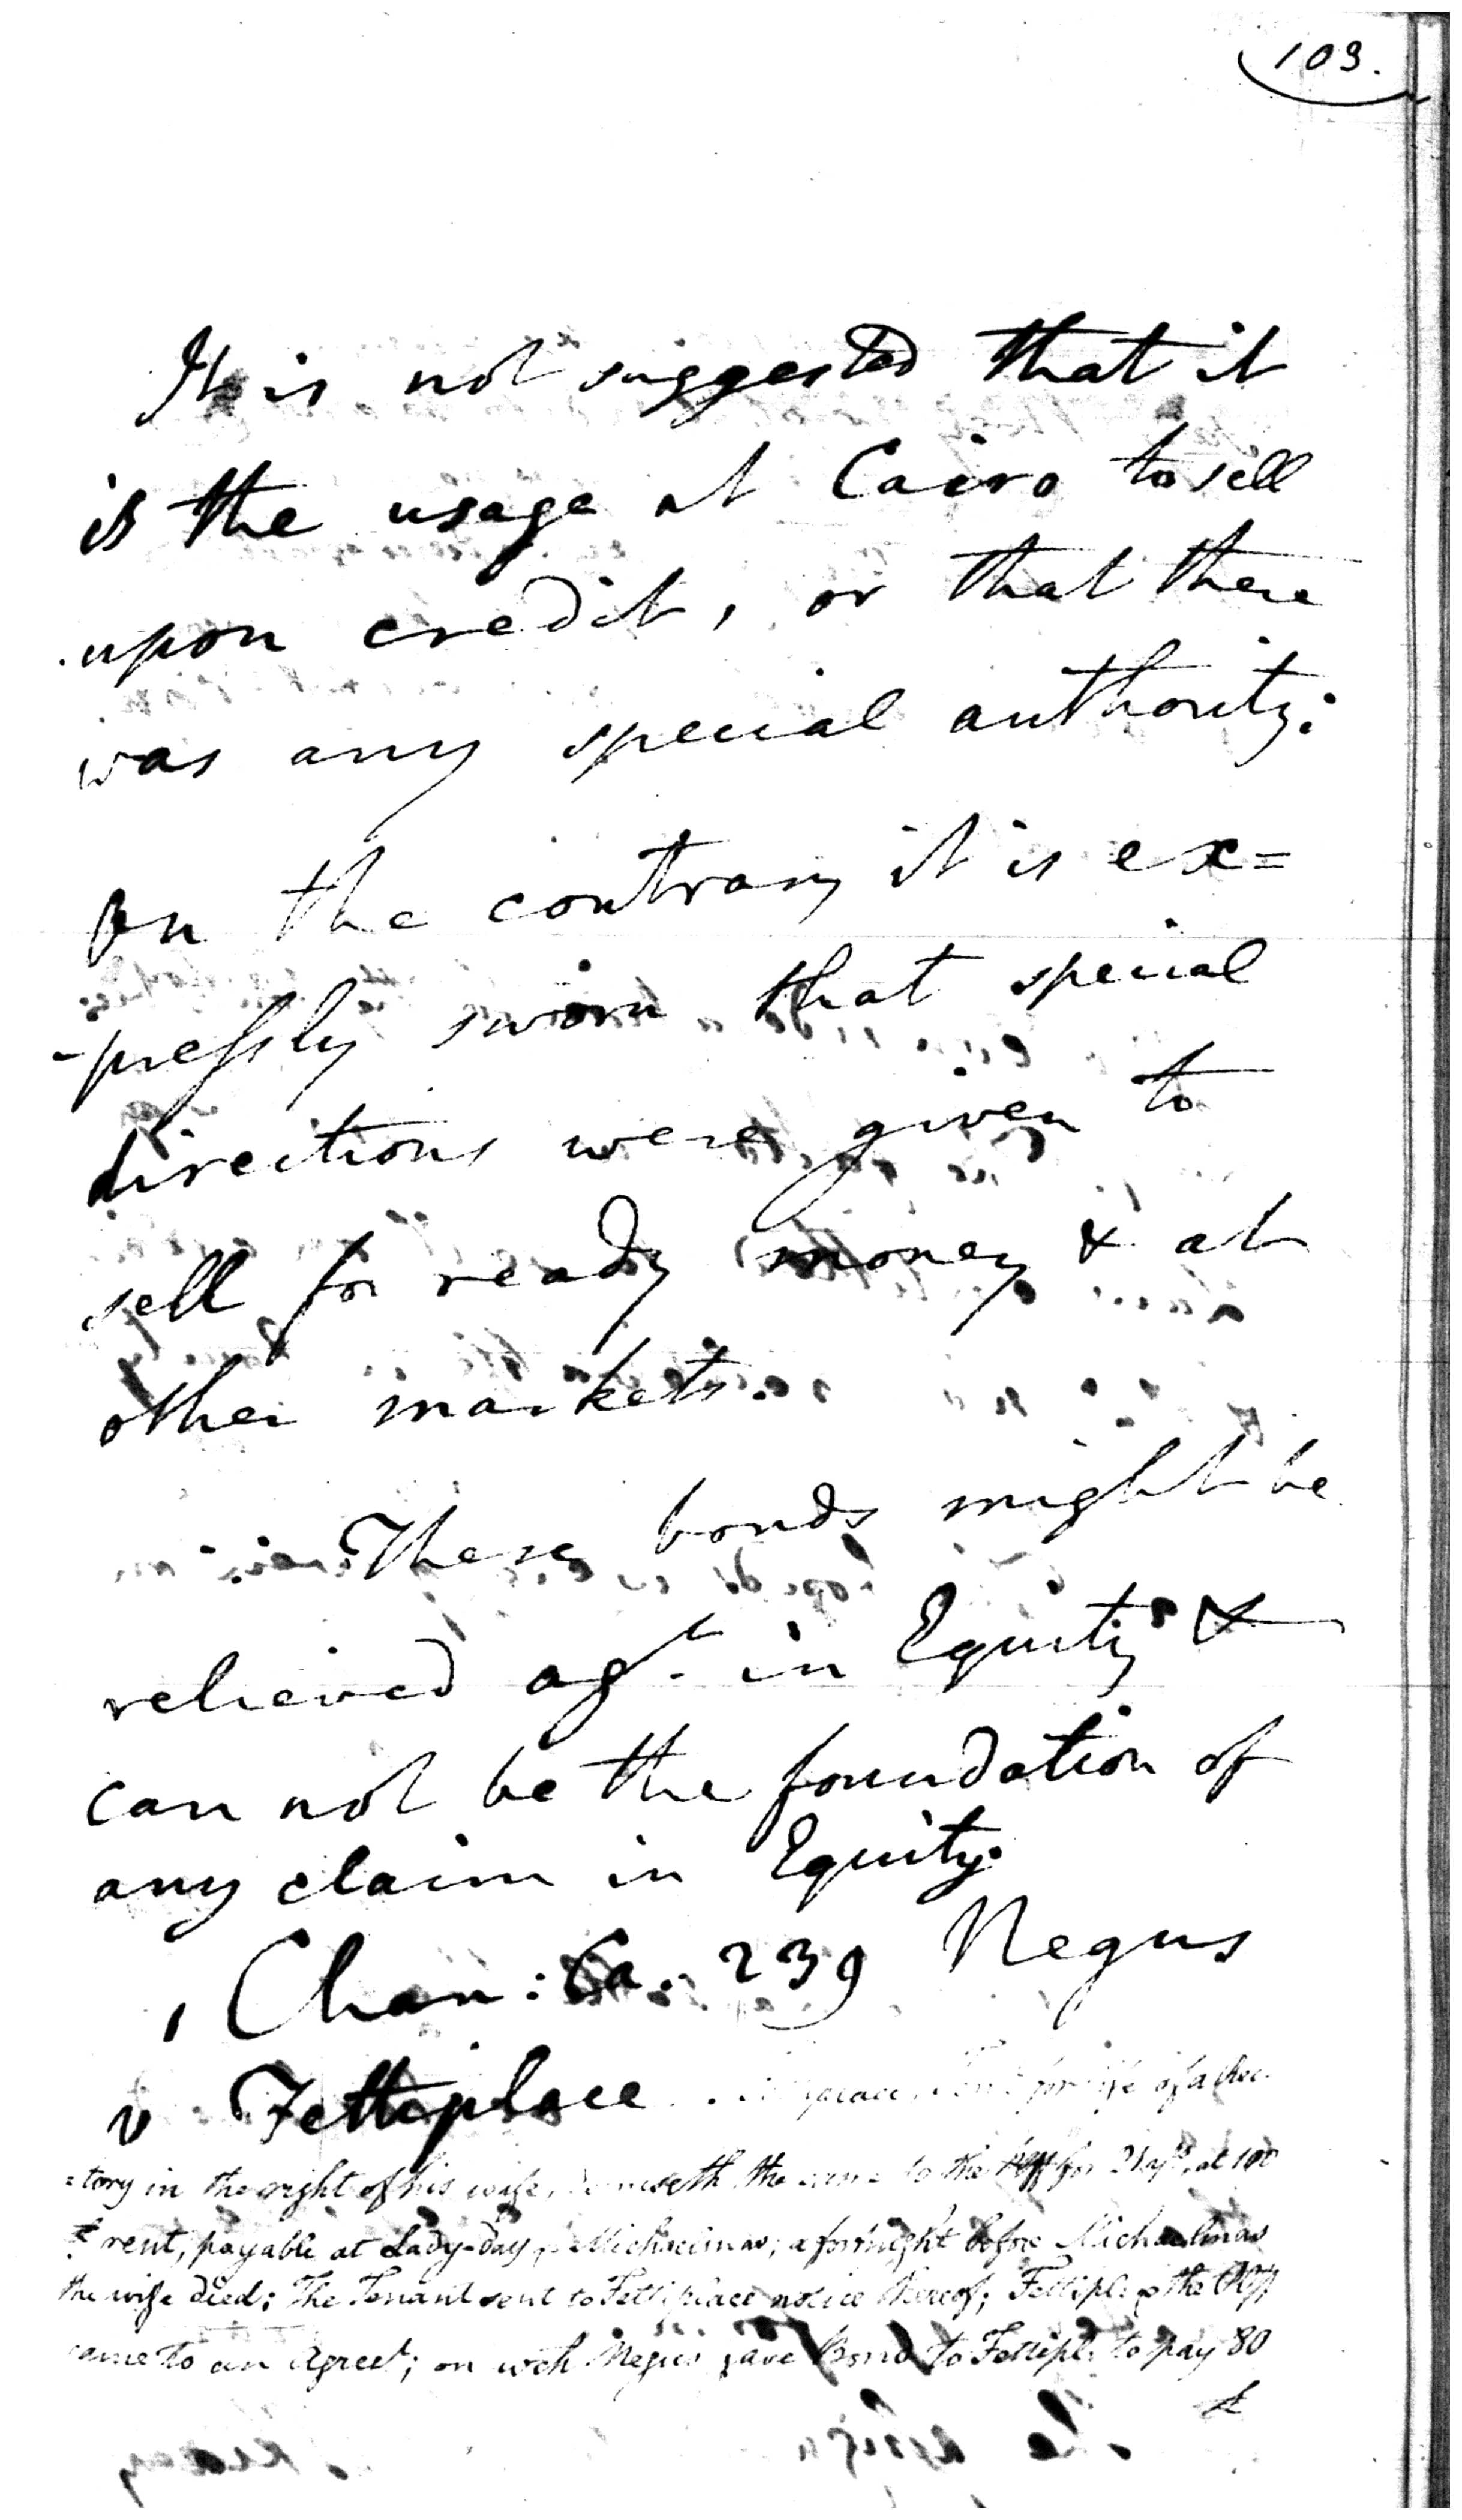 103.
It is not suggested that it
is the usage at Cairo to sell
upon credit, or that there
was any special authority:
on the contrary it is ex=
-pressly sworn that special
directions were given to
sell for ready money & at
other markets.
These bonds might be
relieved agt. in Equity &
can not be the foundation of
any claim in Equity.
1 Chan: Ca. 239 Negus
v Fettiplace . for life of a Rec
=tory in the right of his wife, demiseth the same to the Plff for at 100
£ rent, payable at Lady-day & Michaelmas; a fortnight before Michaelmas
the wife died; The Tenant sent to Fettiplace notice thereof; Fettipl. & the Plff
came to an Agreet; on wch Negus gave Bond to Fettipl. to pay 80
£